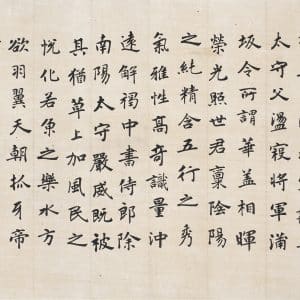 太守父溫寢將軍蒲
坂令所謂華盖相暉
榮光照世君稟陰陽
之純精含五行之秀
氣雅性高奇識量沖
遠解褐中書侍郎除
南陽太守嚴威既被
其猶草上加風民之
悅化若魚之樂水方
欲羽翼天朝抓牙帝